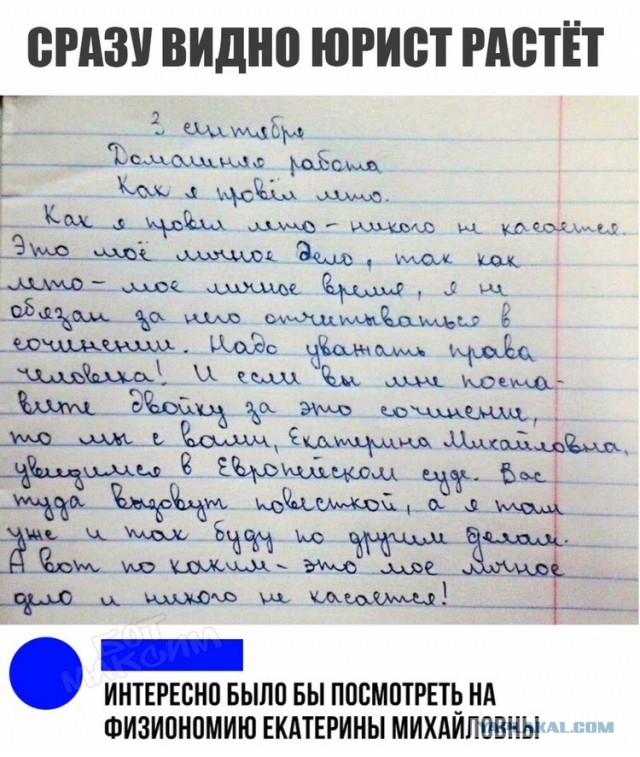 СРАЗУ ВИДНО ЮРИСТ РАСТЁТ
3 сентября
Домашняя работа
Как я провёл лето.
Как я провел лето – никого не касается.
Это моё личное дело, так как
лето – мое личное время, я не
обязан за него отчитываться в
сочинении. Надо уважать права
человека! И если вы мне поста-
вите двойку за это сочинение,
то мы с вами, Екатерина Михайловна,
увидимся в Европейском суде. Вас
туда вызовут повесткой, а я там
уже и так буду по другим делам.
А вот по каким – это мое личное
дело и никого не касается!
БОТ
МАКСИМ
ИНТЕРЕСНО БЫЛО БЫ ПОСМОТРЕТЬ НА
ФИЗИОНОМИЮ ЕКАТЕРИНЫ МИХАЙЛОВНЫ
YAPLAKAL.COM